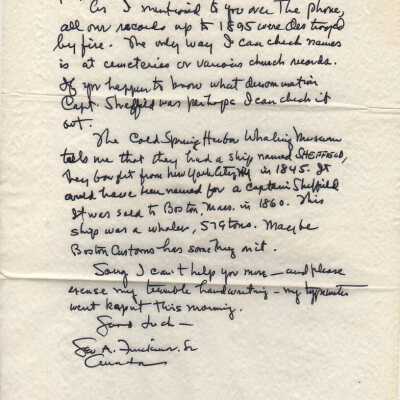 As I mentioned to you over the phone,
all our records up to 1895 were destroyed
by fire. The only way I can check names
is at cemeteries or various church records.
If you happen to know what denomination
Capt. Sheffield was perhaps I can check it
out.
The Cold Spring Harbor Whaling Museum
tells me that they had a ship named SHEFFIELD,
they bought from New York City, NY in 1845. It
could have been named for a Captain Sheffield
It was sold to Boston, Mass. in 1860. This
ship was a whaler, 579 tons. Maybe
Boston Customs has something on it.
Sorry I can't help you more - and please
excuse my terrible handwriting - my typewriter
went kaput this morning.
Good luck -
Geo A. Sr